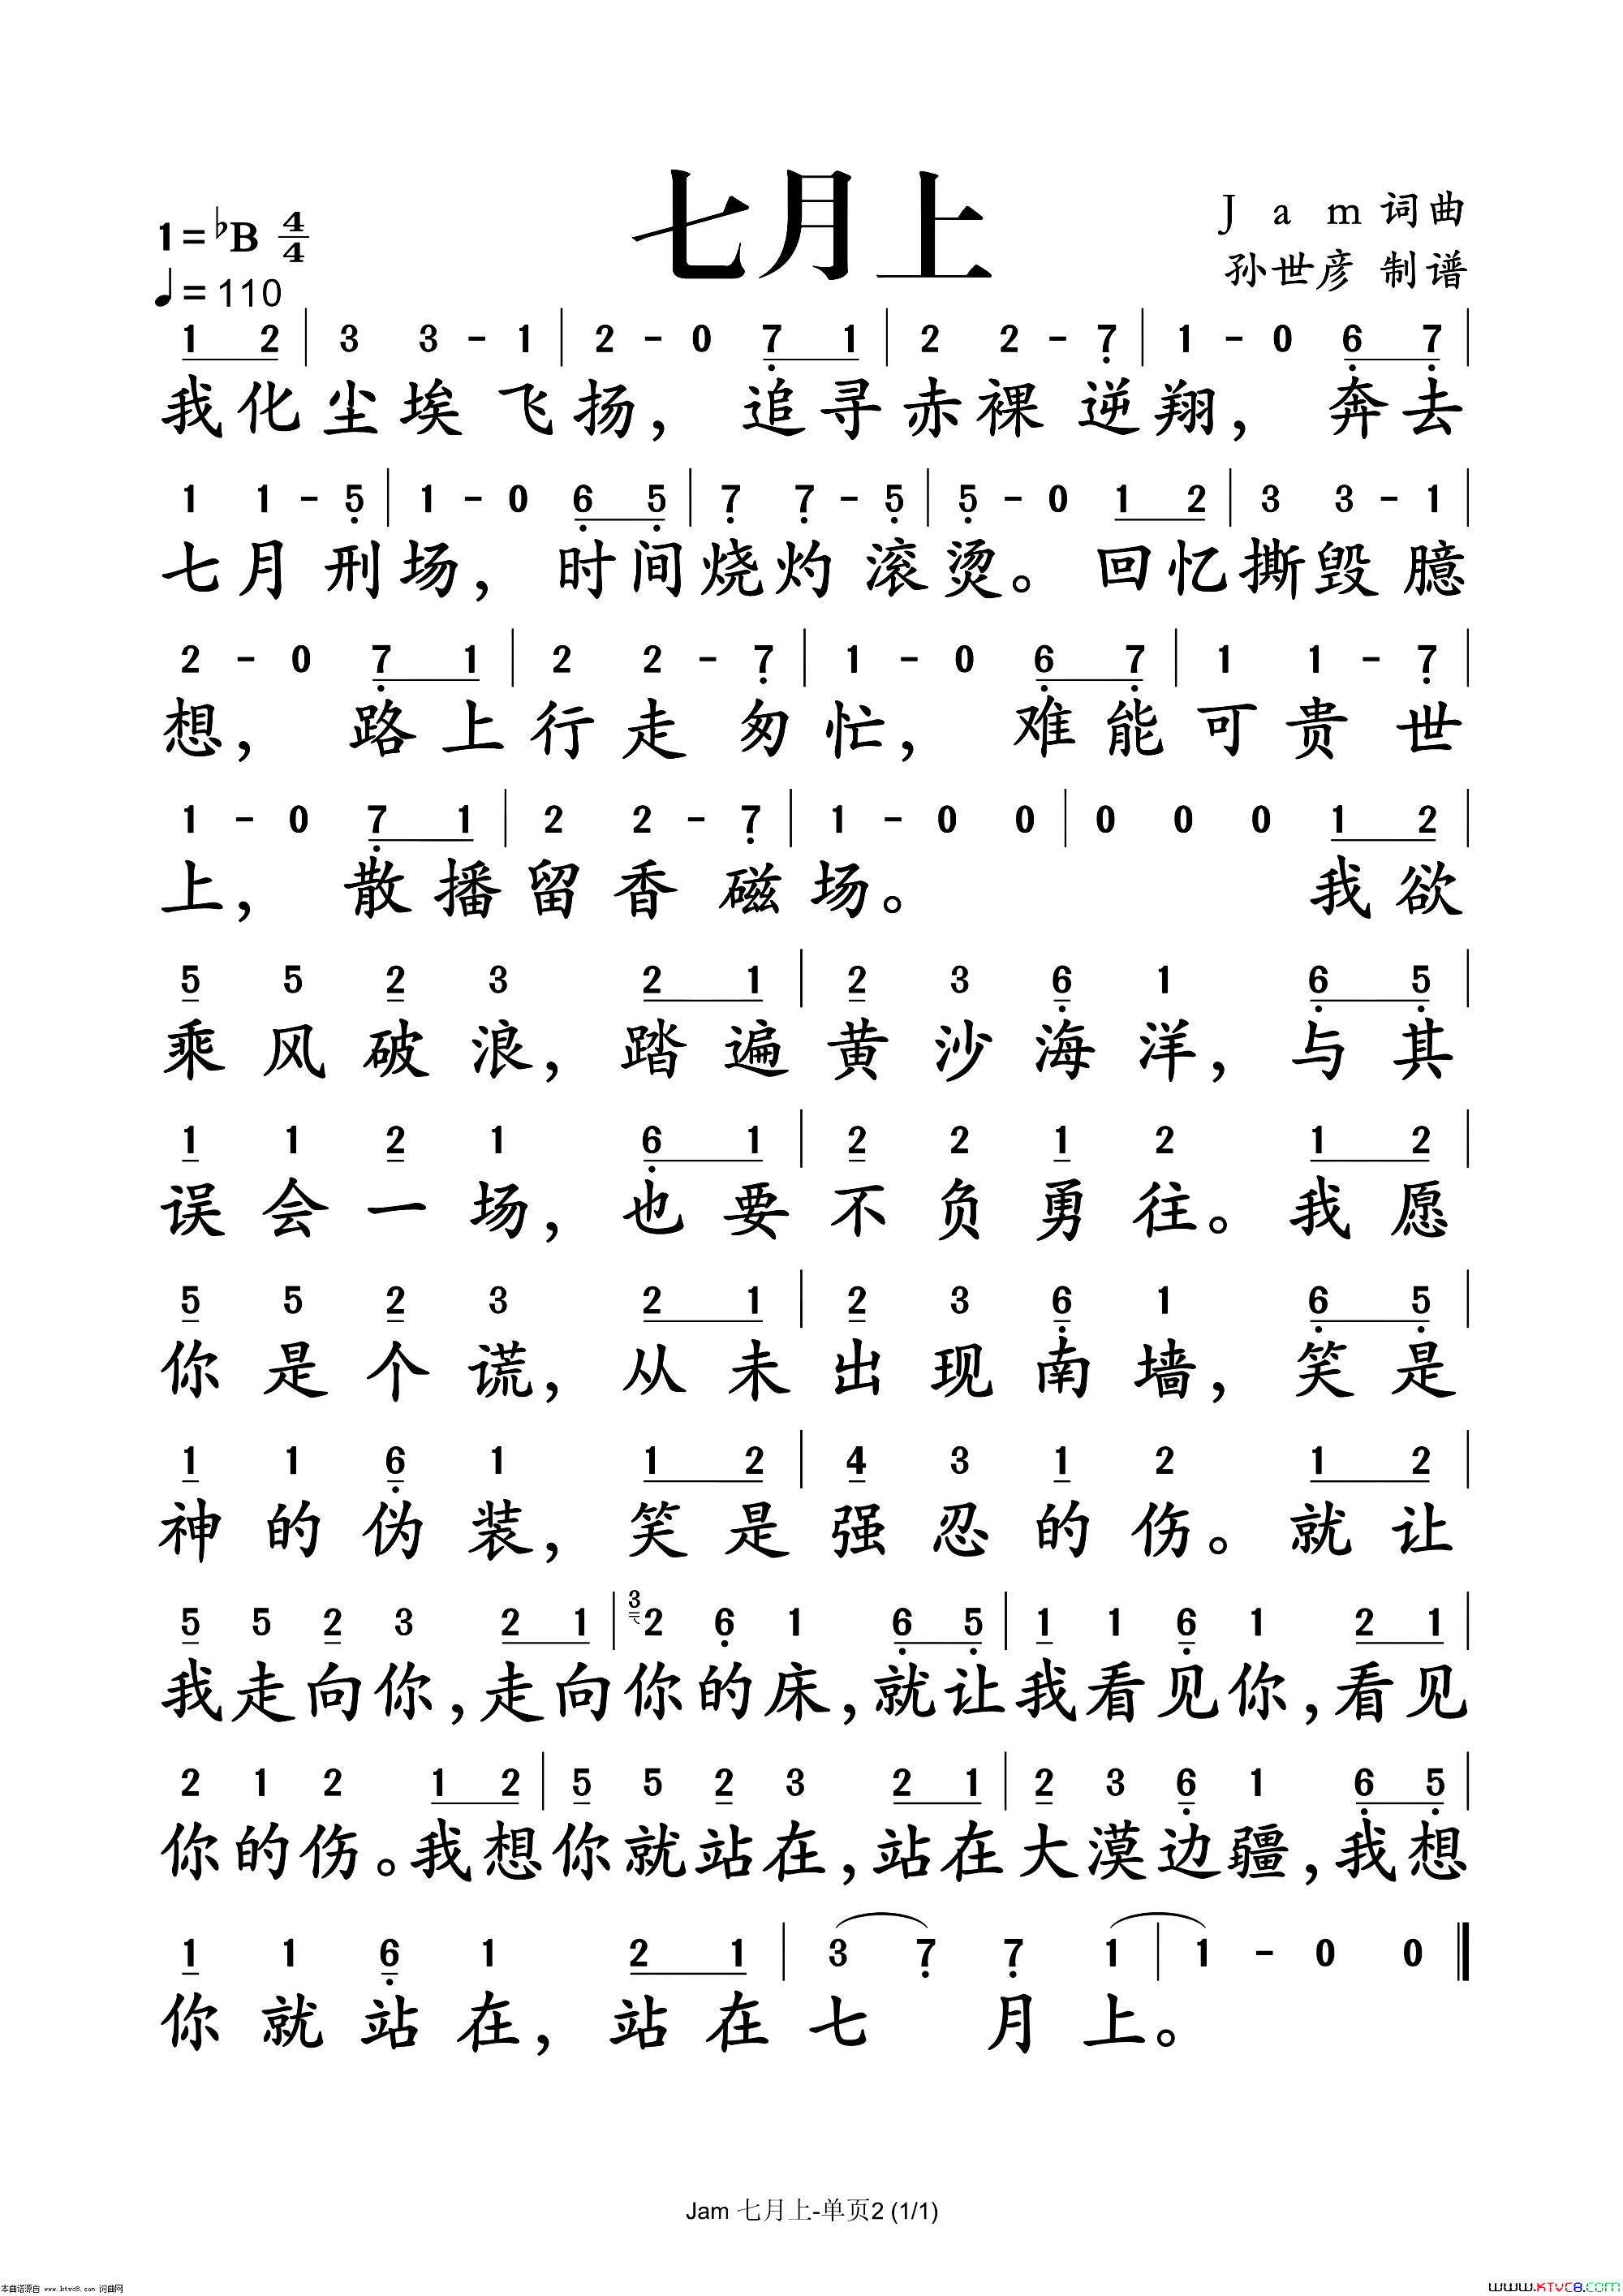 七月上
J a m 词曲
1=♭B 4/4
孙世彦 制谱
♩=110
1 2 | 3 3 - 1 | 2 - 0 7 1 | 2 2 - 7 | 1 - 0 6 7 |
我化尘埃飞扬，追寻赤裸逆翔，奔去
1 1 - 5 | 1 - 0 6 5 | 7 7 - 5 | 5 - 0 1 2 | 3 3 - 1 |
七月刑场，时间烧灼滚烫。回忆撕毁臆
2 - 0 7 1 | 2 2 - 7 | 1 - 0 6 7 | 1 1 - 7 |
想，路上行走匆忙，难能可贵世
1 - 0 7 1 | 2 2 - 7 | 1 - 0 0 | 0 0 0 1 2 |
上，散播留香磁场。我欲
5 5 2 3 2 1 | 2 3 6 1 6 5 |
乘风破浪，踏遍黄沙海洋，与其
1 1 2 1 6 1 | 2 2 1 2 1 2 |
误会一场，也要不负勇往。我愿
5 5 2 3 2 1 | 2 3 6 1 6 5 |
你是个谎，从未出现南墙，笑是
1 1 6 1 1 2 | 4 3 1 2 1 2 |
神的伪装，笑是强忍的伤。就让
5 5 2 3 2 1 | 3 2 6 1 6 5 | 1 1 6 1 2 1 |
我走向你，走向你的床，就让我看见你，看见
2 1 2 1 2 | 5 5 2 3 2 1 | 2 3 6 1 6 5 |
你的伤。我想你就站在，站在大漠边疆，我想
1 1 6 1 2 1 | 3 7 7 1 | 1 - 0 0 ‖
你就站在，站在七月上。
Jam 七月上-单页2 (1/1)
本曲谱源自 www.ktvc8.com 词曲网
WWW.KTVC8.COM